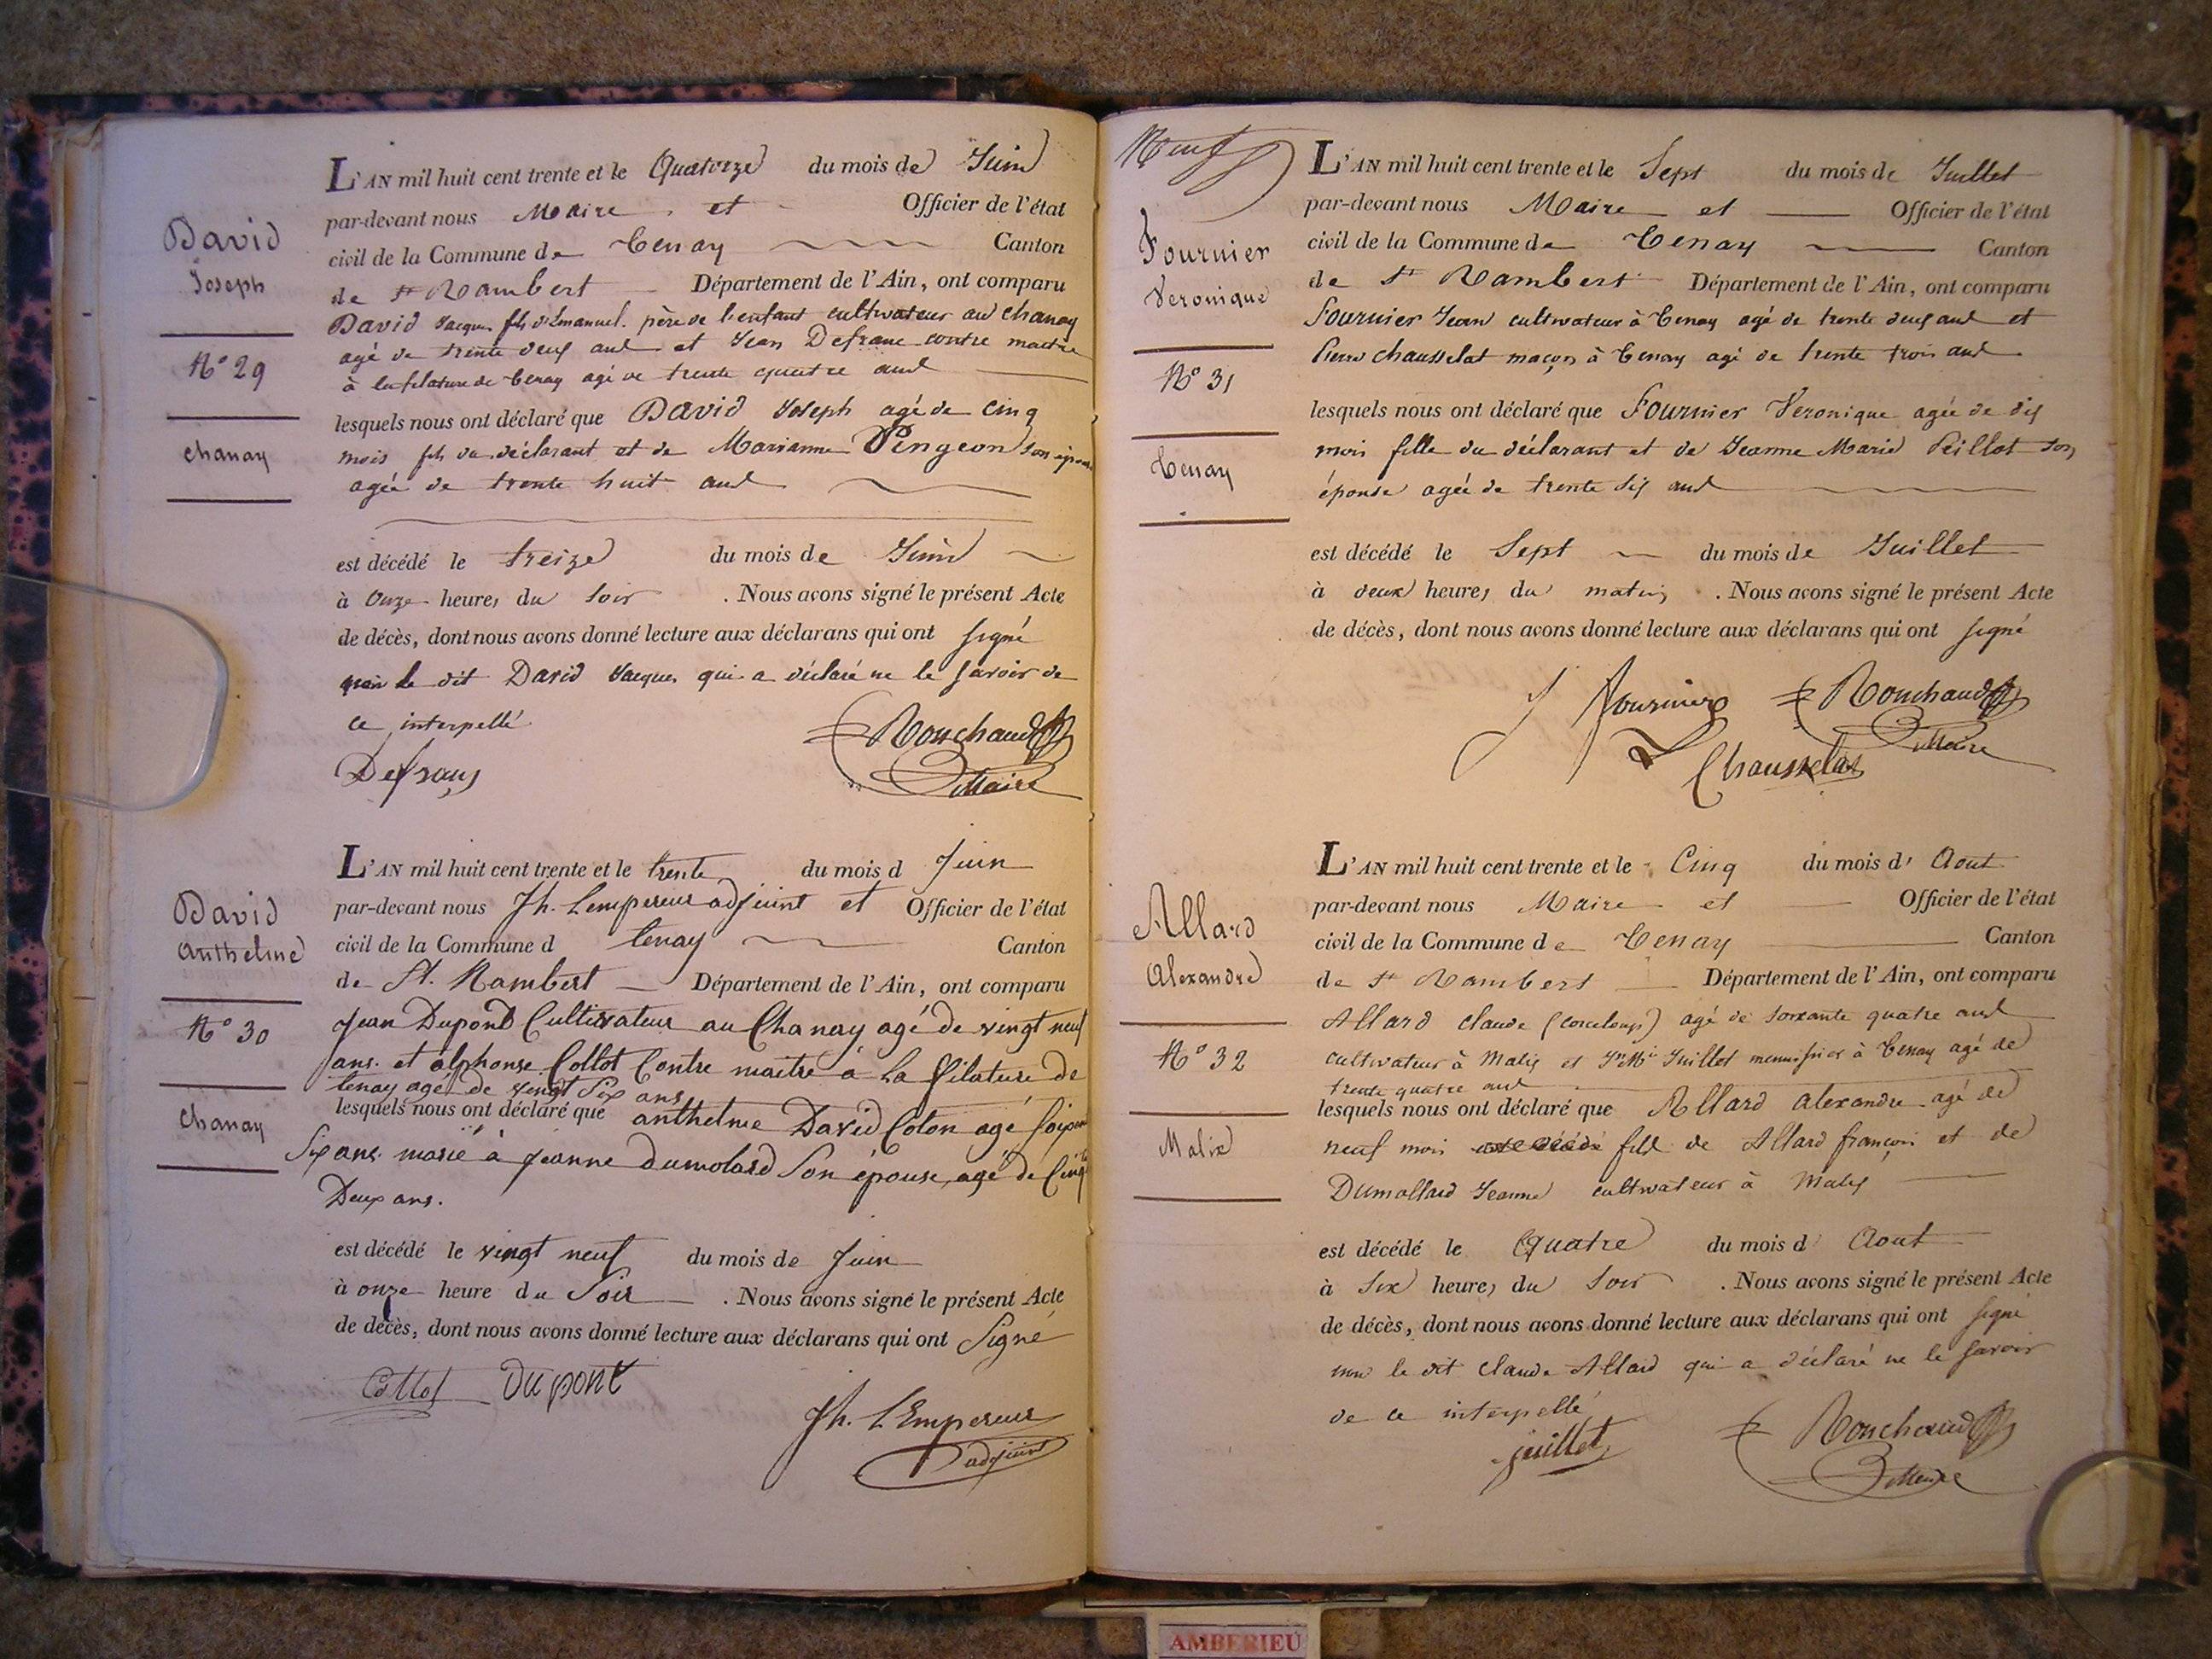 David
Joseph
N° 29
Chanay
L'AN mil huit cent trente et le Quatorze du mois de Juin
par-devant nous Maire et Officier de l'état
civil de la Commune de Tenay Canton
de St Rambert Département de l'Ain, ont comparu
David Jacques fils d'Emanuel père de l'enfant cultivateur au Chanay
agé de trente deux ans et Jean Defranc contre maitre
à la filature de Tenay agé de trente quatre ans
lesquels nous ont déclaré que David Joseph agé de cinq
mois fils du déclarant et de Marianne Pingeon son épouse
agée de trente huit ans
est décédé le treize du mois de Juin
à onze heures du soir . Nous avons signé le présent Acte
de décès, dont nous avons donné lecture aux déclarans qui ont signé
non le dit David Jacques qui a déclaré ne le savoir de
ce interpellé
Rouchaud
Defranc
Maire
David
Anthelme
N° 30
Chanay
L'AN mil huit cent trente et le trente du mois d Juin
par-devant nous Jh. Lempereur adjoint et Officier de l'état
civil de la Commune d tenay Canton
de St. Rambert Département de l'Ain, ont comparu
Jean Dupont Cultivateur au Chanay agé de vingt neuf
ans et alphonse Collot Contre maitre à la filature de
tenay agé de vingt Six ans
lesquels nous ont déclaré que anthelme David Coton agé Soixante
Six ans marié à Jeanne dumolard Son épouse, agé de Cinqte
Deux ans.
est décédé le vingt neuf du mois de Juin
à onze heure du Soir . Nous avons signé le présent Acte
de décès, dont nous avons donné lecture aux déclarans qui ont Signé
Collot Dupont
Jh. L'Empereur
adjoint
Neuf
Fournier
Veronique
N° 31
Tenay
L'AN mil huit cent trente et le Sept du mois de Juillet
par-devant nous Maire et Officier de l'état
civil de la Commune de Tenay Canton
de St Rambert Département de l'Ain, ont comparu
Fournier Jean cultivateur à Tenay agé de trente deux ans et
Pierre Chausselat maçon à Tenay agé de trente trois ans
lesquels nous ont déclaré que Fournier Veronique agée de dix
mois fille du déclarant et de Jeanne Marie Peillot son
épouse agée de trente six ans
est décédé le Sept du mois de Juillet
à deux heures du matin . Nous avons signé le présent Acte
de décès, dont nous avons donné lecture aux déclarans qui ont signé
J Fournier Rouchaud
Maire
Chausselat
Allard
Alexandre
N° 32
Malix
L'AN mil huit cent trente et le Cinq du mois d' Aout
par-devant nous Maire et Officier de l'état
civil de la Commune de Tenay Canton
de St Rambert Département de l'Ain, ont comparu
Allard Claude agé de soixante quatre ans
cultivateur à Malix et Juillet menuisier à Tenay agé de
trente quatre ans
lesquels nous ont déclaré que Allard alexandre agé de
neuf mois fils de Allard françois et de
Dumollard Jeanne cultivateur à Malix
est décédé le Quatre du mois d Aout
à six heures du soir . Nous avons signé le présent Acte
de décès, dont nous avons donné lecture aux déclarans qui ont signé
non le dit Claude Allard qui a déclaré ne le savoir
de ce interpellé
Rouchaud
juillet
Maire
AMBERIEU